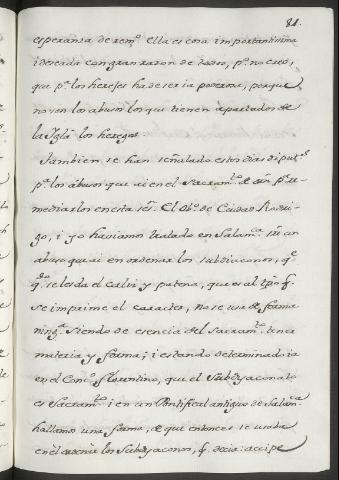 81.
esperansa de rem.º ella es cosa importantissima
i deseada con gran razon de todos, p.º no creo,
que p.ª los herejes ha de ser ia poderosa, porque
no son los abusos los que tienen apartados de
la Igl.ª los hereges
Tambien se han señalado estos dias diput.ºs
p.ª los abusos que ai en el Sacram.to de orn p.ª re-
mediarlos en esta ses. El Ob.º de Ciudad Rodri-
go, i yo haviamos tratado en Salam.ca un
abuso que ai en ordenar los subdiaconos, q.e
q.do se les da el caliz y patena, que es al tpo q.
se imprime el caracter, no se usa de forma
ning.ª siendo de esencia del Sacram.to tener
materia y forma; i estando determinado ia
en el Conc.º florentino, que el Subdyaconato
es Sacram.to i en un Pontifical antiguo de Salam.ca
hallamos una forma, de que entonces se usaba
en el ordenar los Subdyaconos, q. decia: accipe